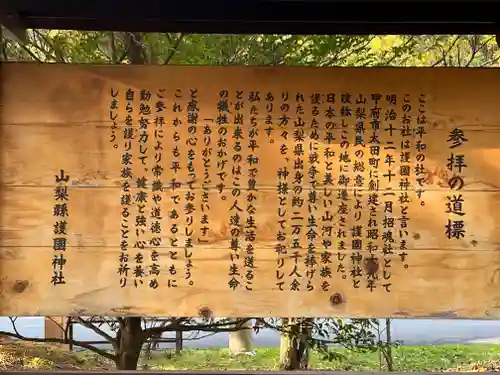 参拝の道標
ここは平和の社です。
このお社は護國神社と言います。
明治十二年十一月招魂社として
甲府市太田町に創建され昭和十九年
山梨県民の総意により護國神社と
改称しこの地に御遷座されました。
日本の平和と美しい山河や家族を
護るために戦争で尊い生命を捧げら
れた山梨県出身の約二万五千余
りの方々を、神様としてお祀りして
あります。
私たちが平和で豊かな生活を送るこ
とが出来るのはこの人達の尊い生命
の犠牲のおかげです。
「ありがとうございます」
と感謝の心をもってお参りしましょう。
これからも平和であるとともに
ご参拝により常識や道徳心を高め
勤勉努力して、健康で強い心を養い
自らを護り家族を護ることをお祈り
しましょう。
山梨縣護國神社